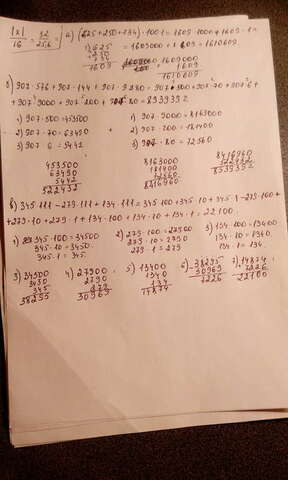 |x| / 16 = 32 / 25,6
а) (625 + 250 + 734) · 1001 = 1609 · 1000 + 1609 · 1 =
1) 625 = 1609000 + 1609 = 1610609
1609
1609000
1609
1610609
907 · 576 + 907 · 144 + 907 · 9280 = 907 · 500 + 907 · 70 + 907 · 6 +
1) 907 · 500 = 453500
2) 907 · 70 = 63490
3) 907 · 6 = 5442
1) 907 · 9000 = 8163000
2) 907 · 200 = 181400
3) 907 · 80 = 72560
453500
63490
5442
522432
8163000
181400
72560
8416960
8416960
в) 345 · 111 - 279 · 111 + 134 · 111 = 345 · 100 + 345 · 10 + 345 · 1 - 279 · 100 +
+ 279 · 10 + 279 · 1 + 134 · 100 + 134 · 10 + 134 · 1 = 22100
1) 345 · 100 = 34500
345 · 10 = 3450
345 · 1 = 345
2) 279 · 100 = 27900
279 · 10 = 2790
279 · 1 = 279
3) 134 · 100 = 13400
134 · 10 = 1340
134 · 1 = 134
3) 34500
3450
345
38295
4) 27900
2790
279
30969
5) 13400
1340
134
14874
6) - 38295
30969
7226
7) 14874
7226
22100